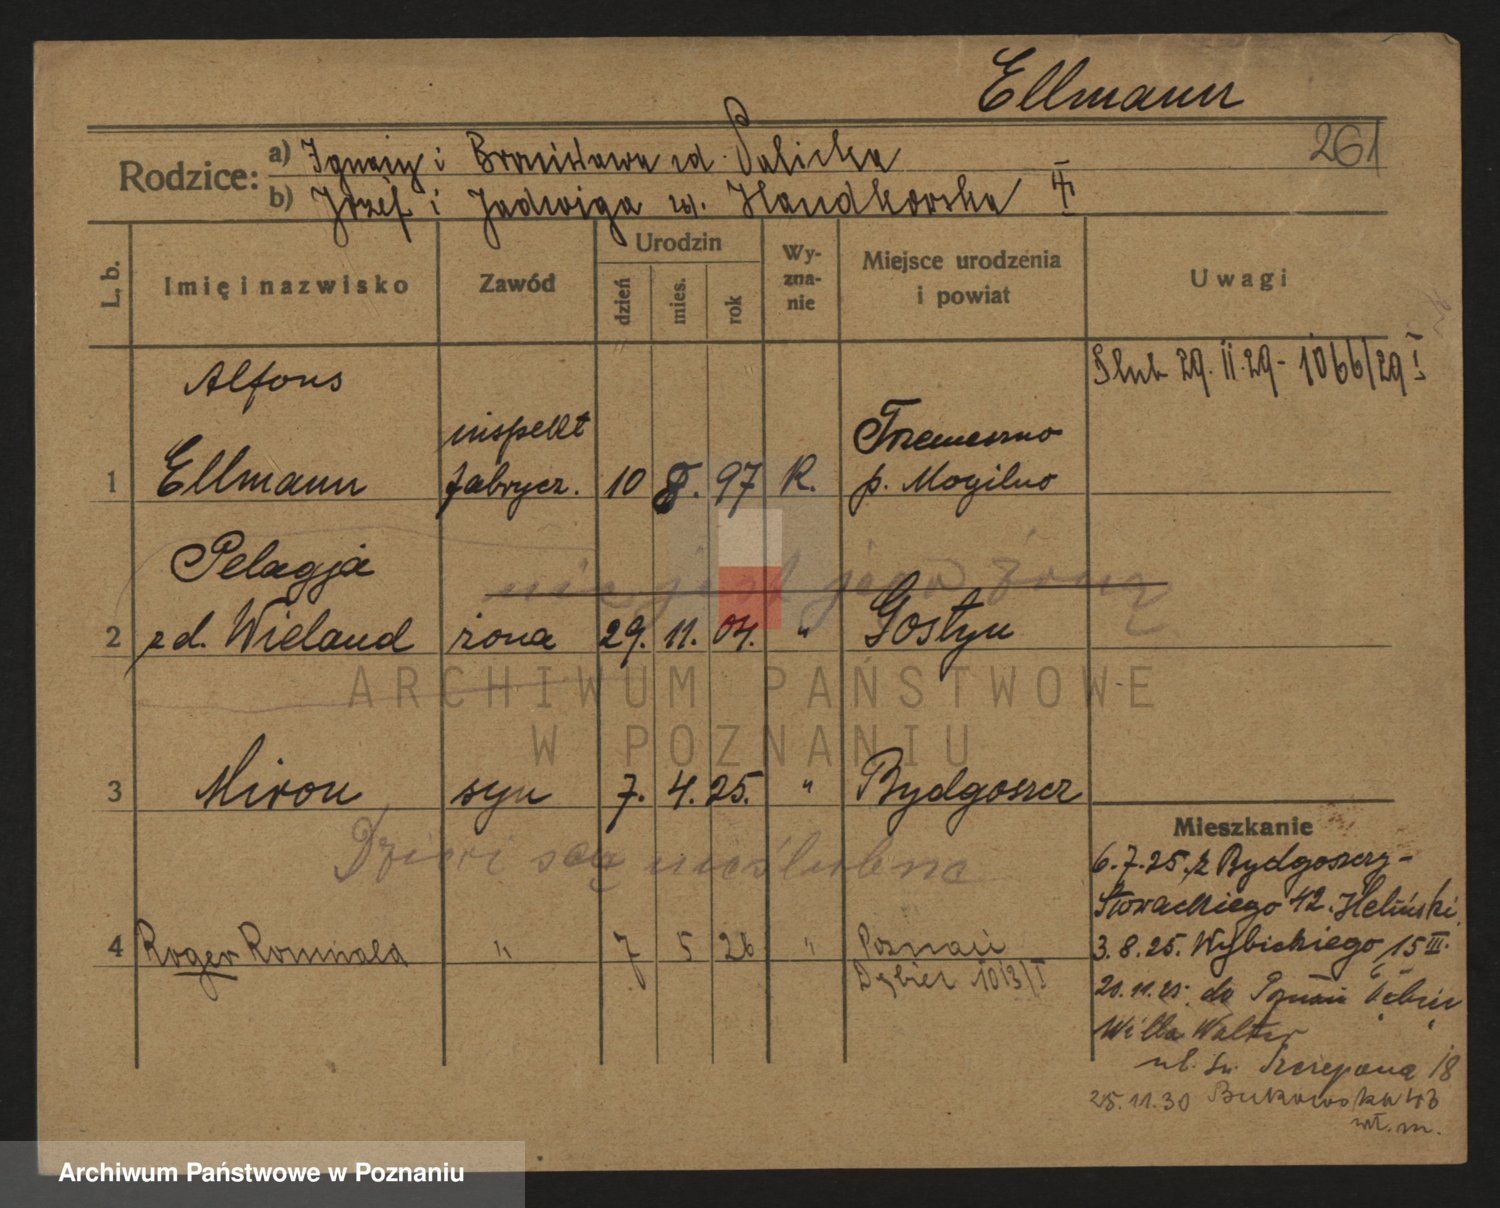 Ellmann
261
Rodzice: a) Ignacy i Bronisława z d. Palicka
b) Józef i Jadwiga z d.
L. b.
Imię i nazwisko
Zawód
Urodzin
dzień
mies.
rok
Wy-
zna-
nie
Miejsce urodzenia
i powiat
Uwagi
Ślub 29. II. 29 - 1066/29 I
Alfons
inspekt
Trzemeszno
1 Ellmann fabrycz. 10 8. 97 R. p. Mogilno
Pelagja
nie jest jego żoną
2 z d. Wieland żona 29. 11. 04. " Gostyń
ARCHIWUM PAŃSTWOWE
W POZNANIU
3 Miron syn 7. 4. 25. " Bydgoszcz
Mieszkanie
Dzieci są nieślubne
6.7.25. z Bydgoszczy-
Słowackiego 42.
4 Roger Romuald " 7 5 26 " Poznań
3.8.25. Wybickiego 15 III.
1013/I
20.11.25. do Poznań
Willa Walter
ul. Św. Szczepana 18
25.11.30 Bukowska
wł. m.
Archiwum Państwowe w Poznaniu